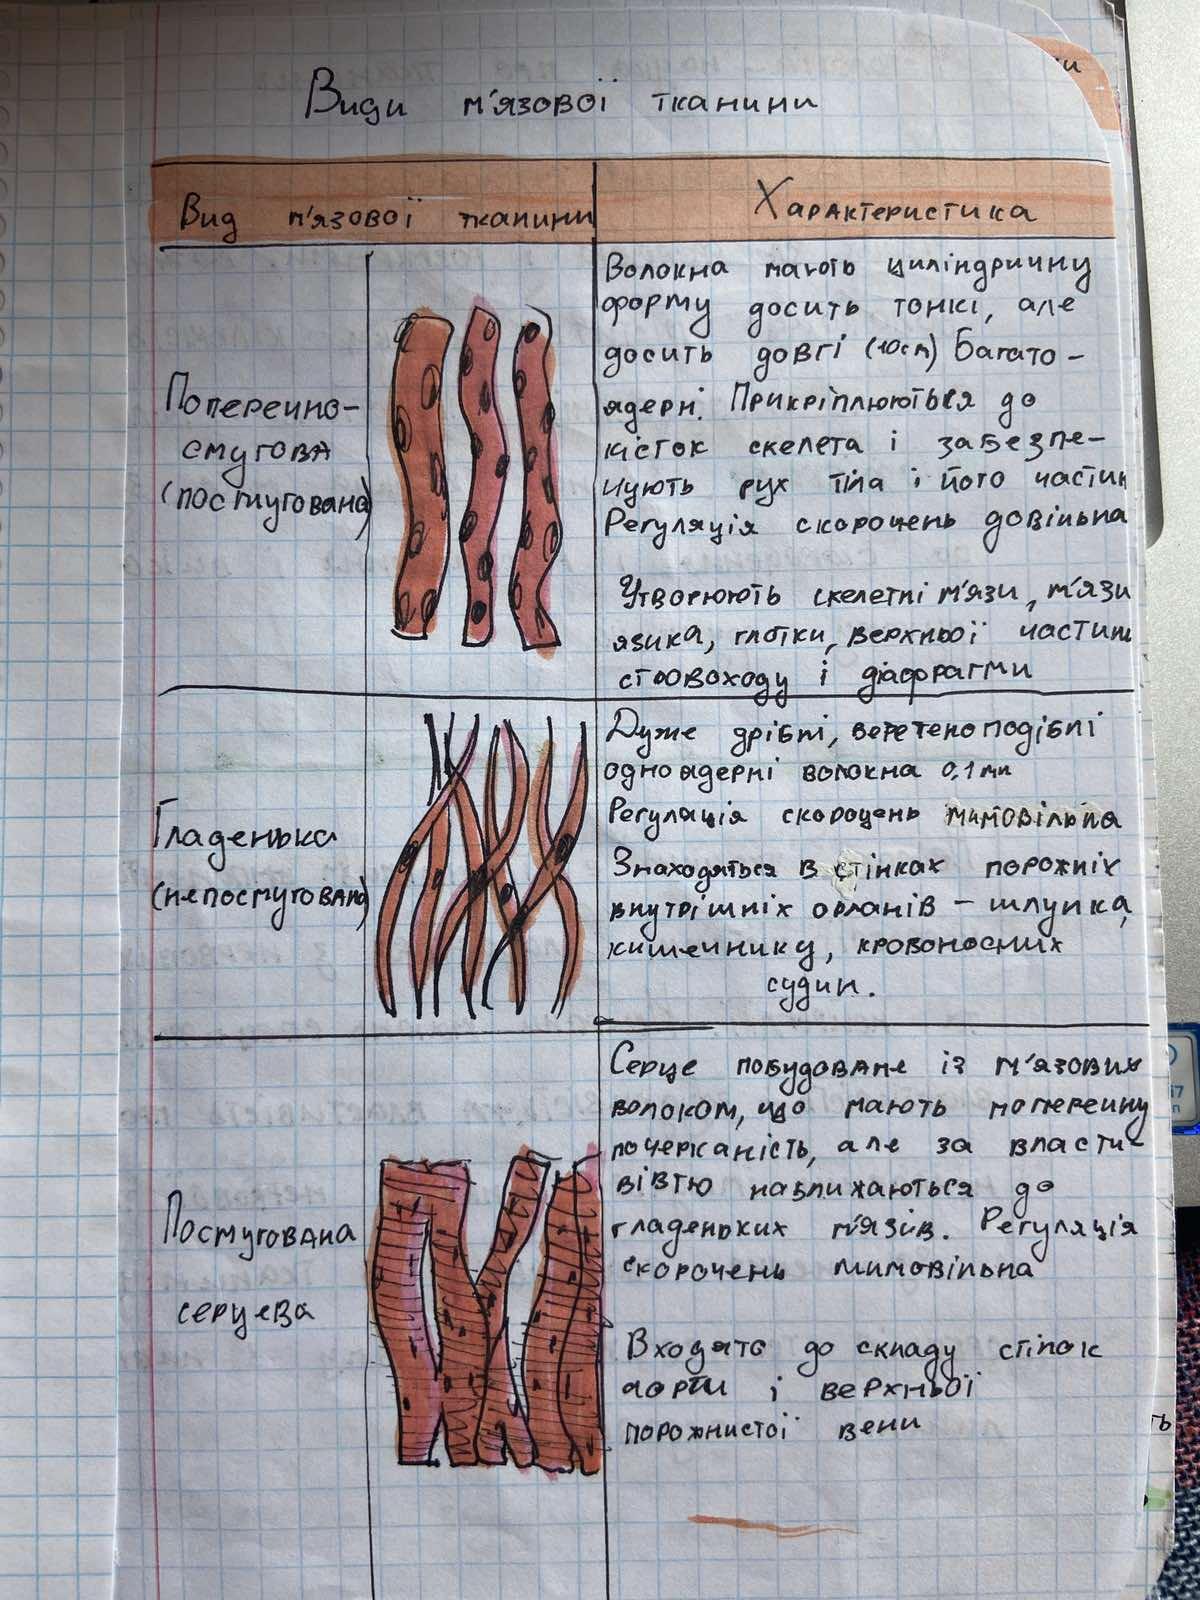 Види м'язової тканини
Вид м'язової тканини
Характеристика
Поперечно-
смугова
(посмугована)
Волокна мають циліндричну
форму досить тонкі, але
досить довгі (10см) Багато-
ядерні. Прикріплюються до
кісток скелета і забезпе-
чують рух тіла і його частин
Регуляція скорочень довільна
Утворюють скелетні м'язи, м'язи
язика, глотки, верхньої частини
стовоходу і діафрагми
Гладенька
(непосмугована)
Дуже дрібні, веретеноподібні
одноядерні волокна 0,1 мм
Регуляція скорочень мимовільна
Знаходяться в стінках порожніх
внутрішніх органів - шлунка,
кишечнику, кровоносних
судин.
Посмугована
серцева
Серце побудоване із м'язових
волокон, що мають поперечну
почерканість, але за власти-
вівтю наближаються до
гладеньких м'язів. Регуляція
скорочень мимовільна
Входять до складу стінок
аорти і верхньої
порожнистої вени